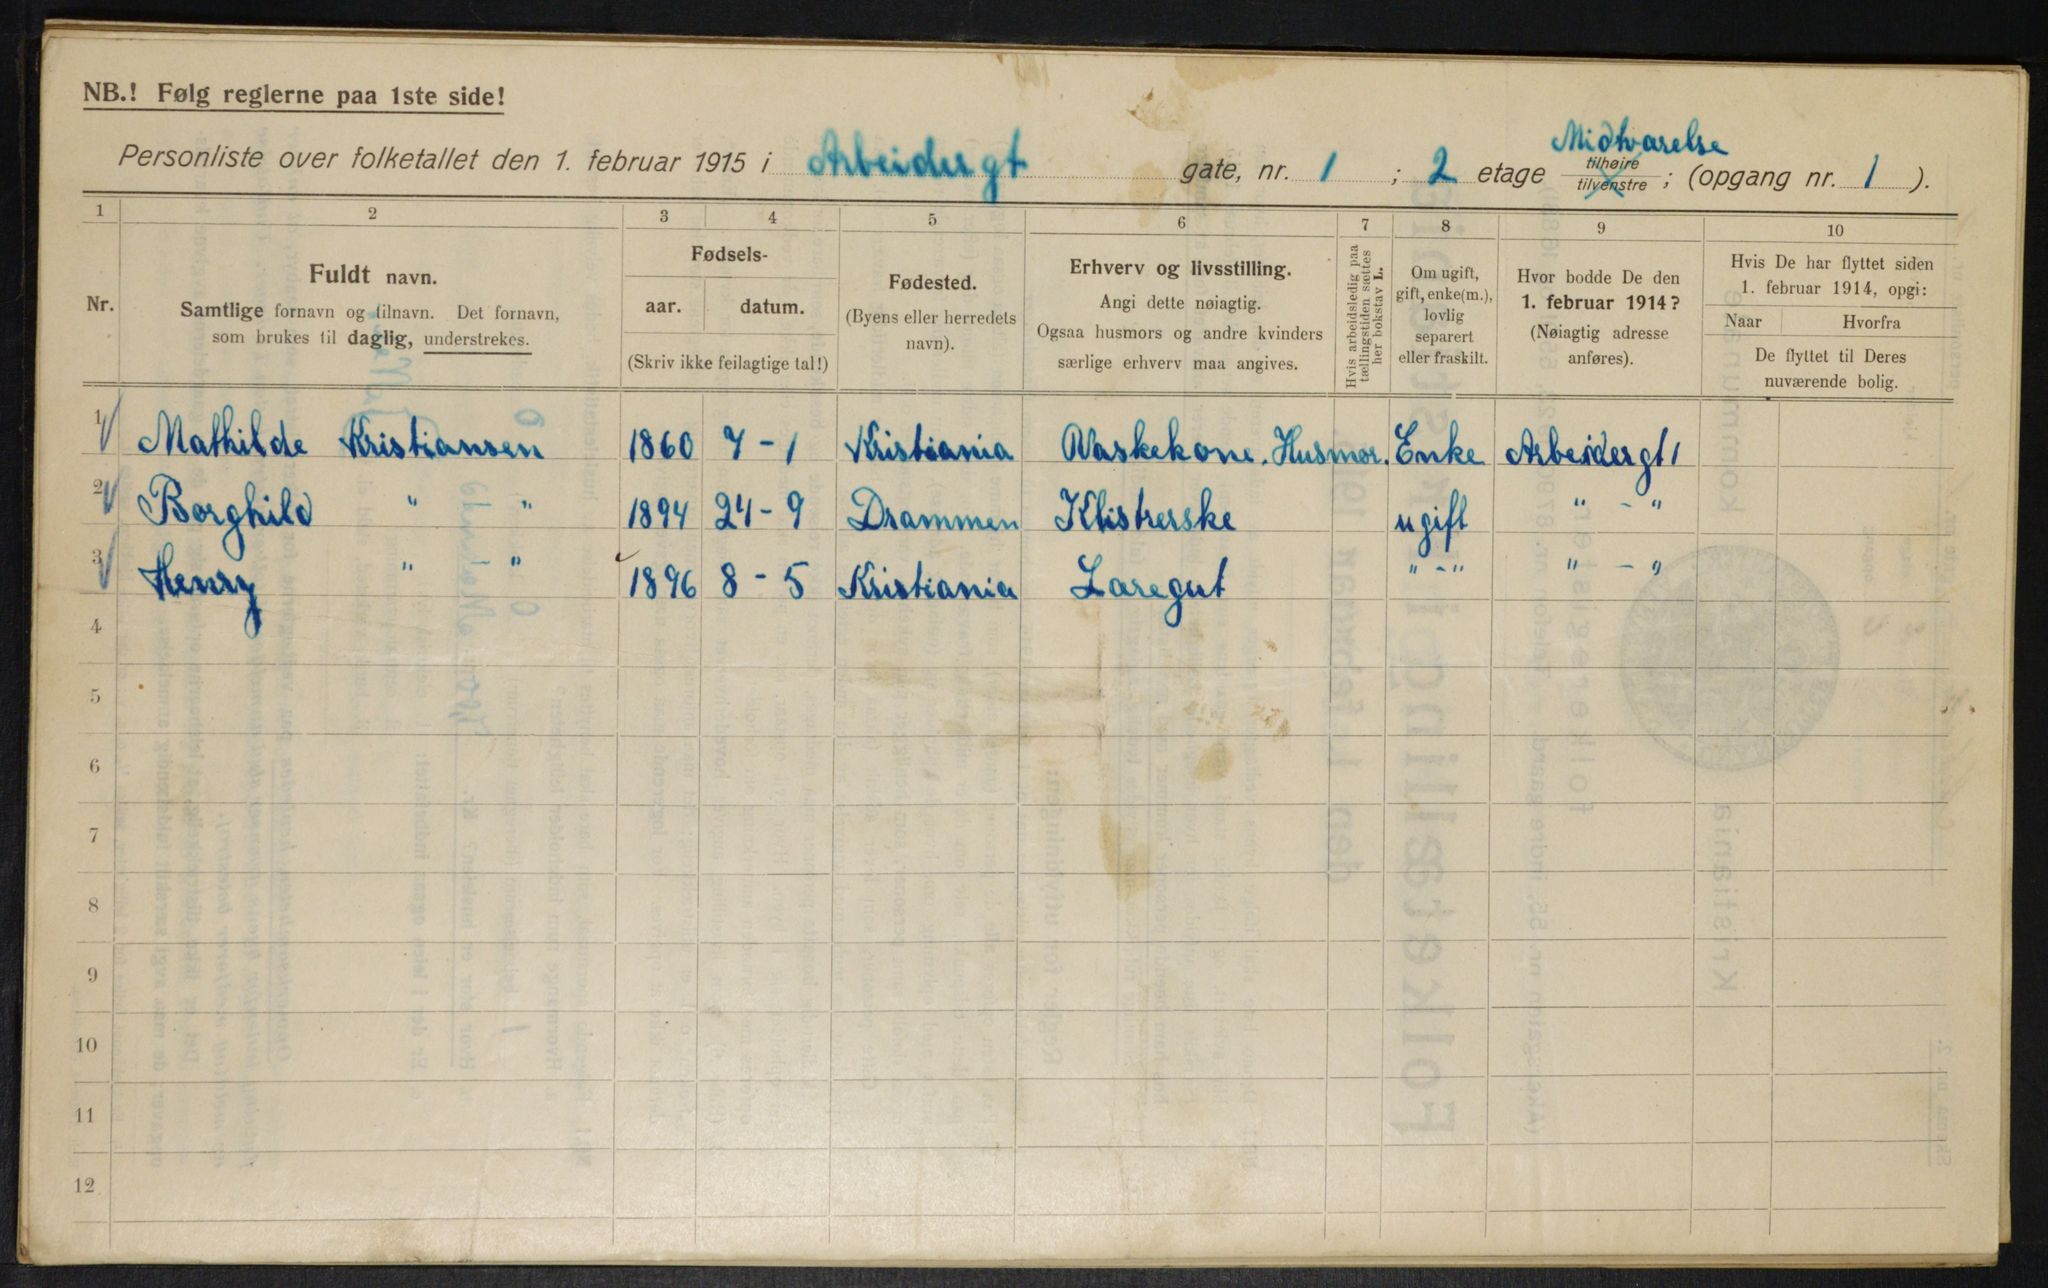 NB.! Følg reglerne paa 1ste side!
Midtvarelse
Personliste over folketallet den 1. februar 1915 i Arbeidergt gate, nr. 1 ; 2 etage tilhøire tilvenstre ; (opgang nr. 1 ).
1 2 3 4 5 6 7 8 9 10
Nr.
Fuldt navn.
Samtlige fornavn og tilnavn. Det fornavn,
som brukes til daglig, understrekes.
Fødsels-
aar. datum.
(Skriv ikke feilagtige tal!)
Fødested.
(Byens eller herredets
navn).
Erhverv og livsstilling.
Angi dette nøiagtig.
Ogsaa husmors og andre kvinders
særlige erhverv maa angives.
Hvis arbeidsledig paa
tællingstiden sættes
her bokstav L.
Om ugift,
gift, enke(m.),
lovlig
separert
eller fraskilt.
Hvor bodde De den
1. februar 1914?
(Nøiagtig adresse
anføres).
Hvis De har flyttet siden
1. februar 1914, opgi:
Naar Hvorfra
De flyttet til Deres
nuværende bolig.
1 Mathilde Kristiansen 1860 7 - 1 Kristiania Vaskekone. Husmor. Enke Arbeidergt 1
2 Borghild " " 1894 24 - 9 Drammen Klistrerske ugift " - "
3 Henry " " 1896 8 - 5 Kristiania Læregut " - " " - "
4
5
6
7
8
9
10
11
12